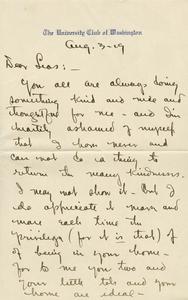 The University Club of Washington
Aug. 3-19
Dear Peas:-
You all are always doing
something kind and nice and
thoughtful for me - and I'm
heartily ashamed of myself
that I have never and
can not do a thing to
return the many kindness.
I may not show it - But I
do appreciate it more and
more each time the
privilege (for it is that) of
of being in your home -
for to me you two and
your little tots and your
home are ideal -